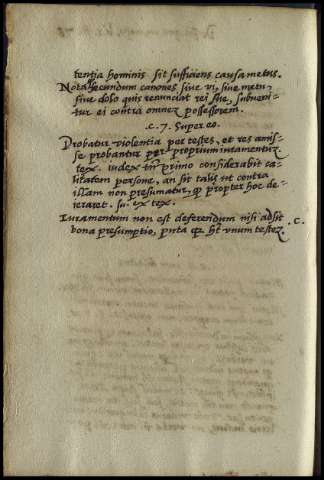 tentia hominis sit sufficiens causa metus.
Nota secundum canones siue vi, siue metu,
siue dolo quis renunciat rei sue, subueni-
tur ei contra omnez possessorem.
.c. 7. Super eo.
Probatur violentia per testes, et res amis-
se probantur per proprium iuramentuz
tex. iudex tñ primo considerabit ca-
litatem persone, an sit talis ut contra
illam non presumatur, ꝙ propter hoc de-
ieraret. su. ex tex.
Iuramentum non est deferendum nisi adsit .c.
bona presumptio, puta qz ht vnum testez.